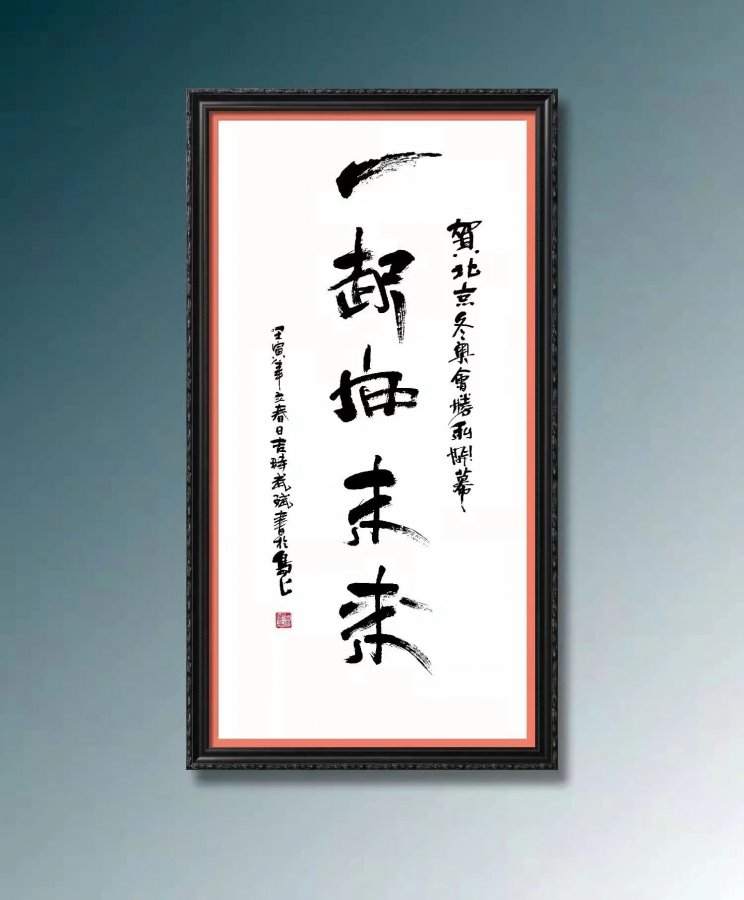 賀北京冬奥會勝利開幕
一起向未来
壬寅年立春日吉時武斌書於島上